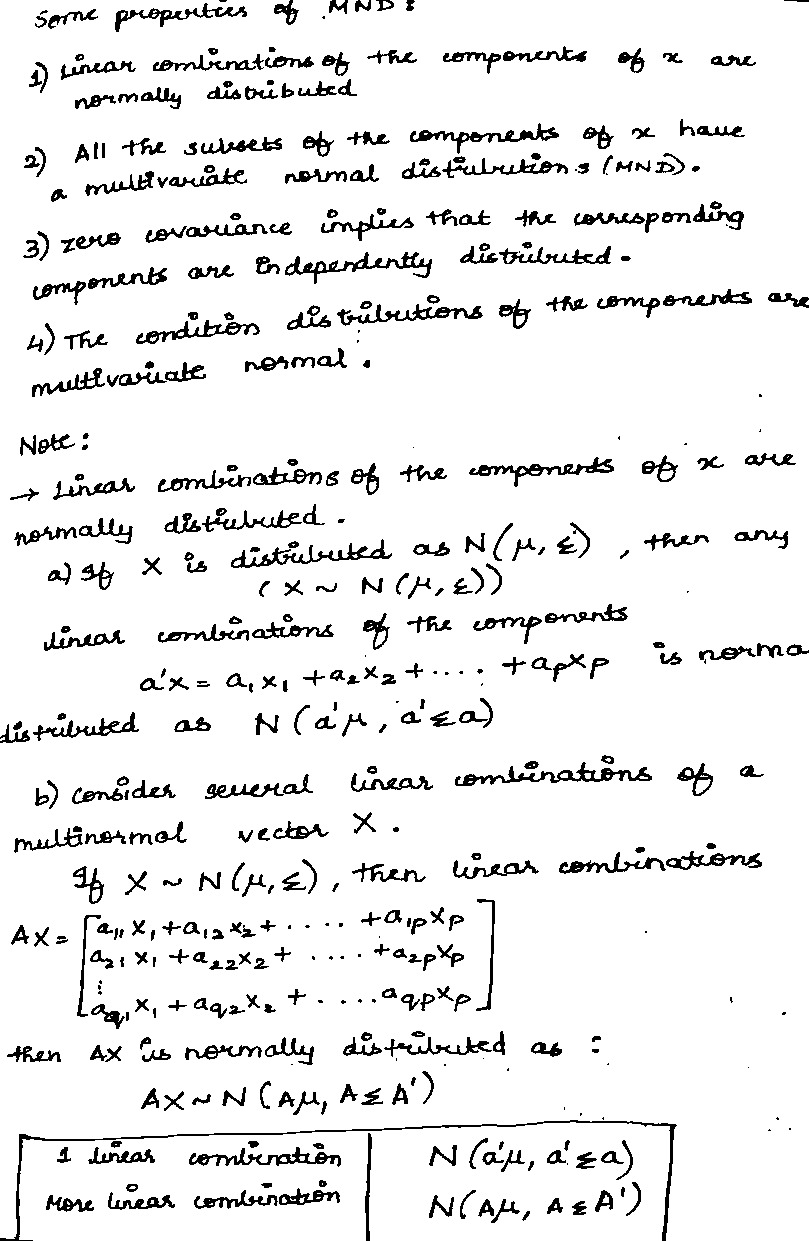 Some properties of MND:
1) Linear combinations of the components of x are
normally distributed
2) All the subsets of the components of x have
a multivariate normal distributions (MND).
3) zero covariance implies that the corresponding
components are independently distributed.
4) The condition distributions of the components are
multivariate normal.
Note:
→ Linear combinations of the components of x are
normally distributed.
a) If X is distributed as N(μ, Σ), then any
(X ~ N(μ, Σ))
linear combinations of the components
a'x = a₁x₁ + a₂x₂ + .... + aₚxₚ is norma
distributed as N(a'μ, a'Σa)
b) Consider several linear combinations of a
multinormal vector X.
If X ~ N(μ, Σ), then linear combinations
AX = [a₁₁x₁ + a₁₂x₂ + .... + a₁ₚxₚ
a₂₁x₁ + a₂₂x₂ + .... + a₂ₚxₚ
⋮
a_q₁x₁ + a_q₂x₂ + .... a_qₚxₚ]
then AX is normally distributed as :
AX ~ N(Aμ, AΣA')
1 linear combination | N(a'μ, a'Σa)
More linear combination | N(Aμ, AΣA')